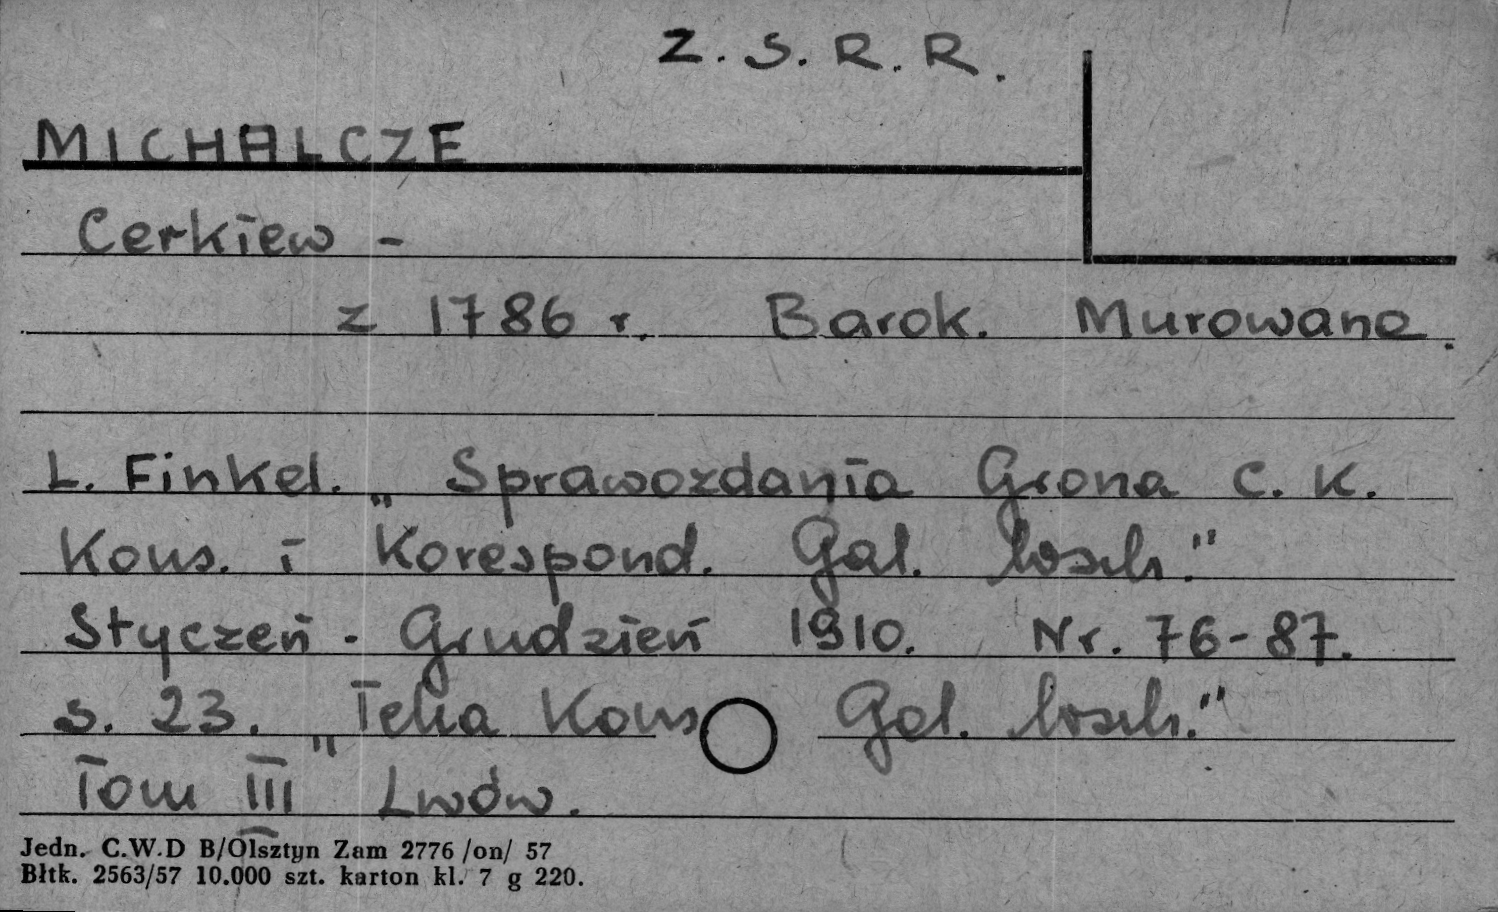 Z. S. R. R.
MICHALCZE
Cerkiew -
z 1786 r. Barok. Murowane.
L. Finkel. „Sprawozdania Grona C. K.
Kons. i Korespond. Gal. Wsch."
Styczeń - Grudzień 1910. Nr. 76-87.
s. 23. „Teka Kons Gal. Wsch."
Tom III Lwów.
Jedn. C.W.D B/Olsztyn Zam 2776 /on/ 57
Błtk. 2563/57 10.000 szt. karton kl. 7 g 220.